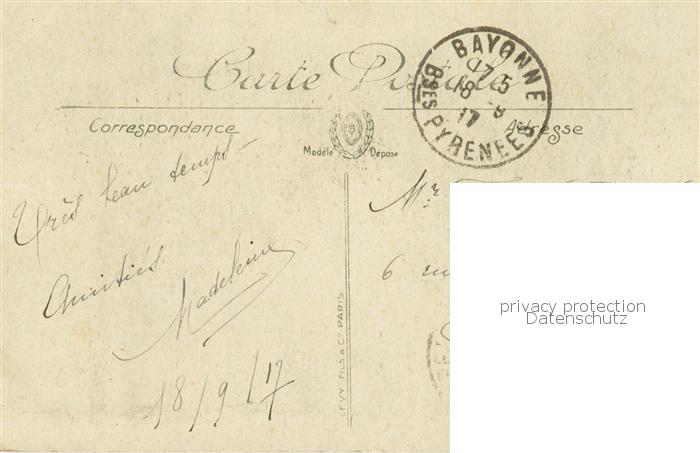 Carte Postale
BAYONNE
17 5
18 - 9
17
BSES PYRENEES
Correspondance
Adresse
Modèle Déposé
Très beau temps -
Amitiés
Madeleine
18/9/17
LEVY FILS & Cie PARIS
Mr
6 rue
privacy protection
Datenschutz